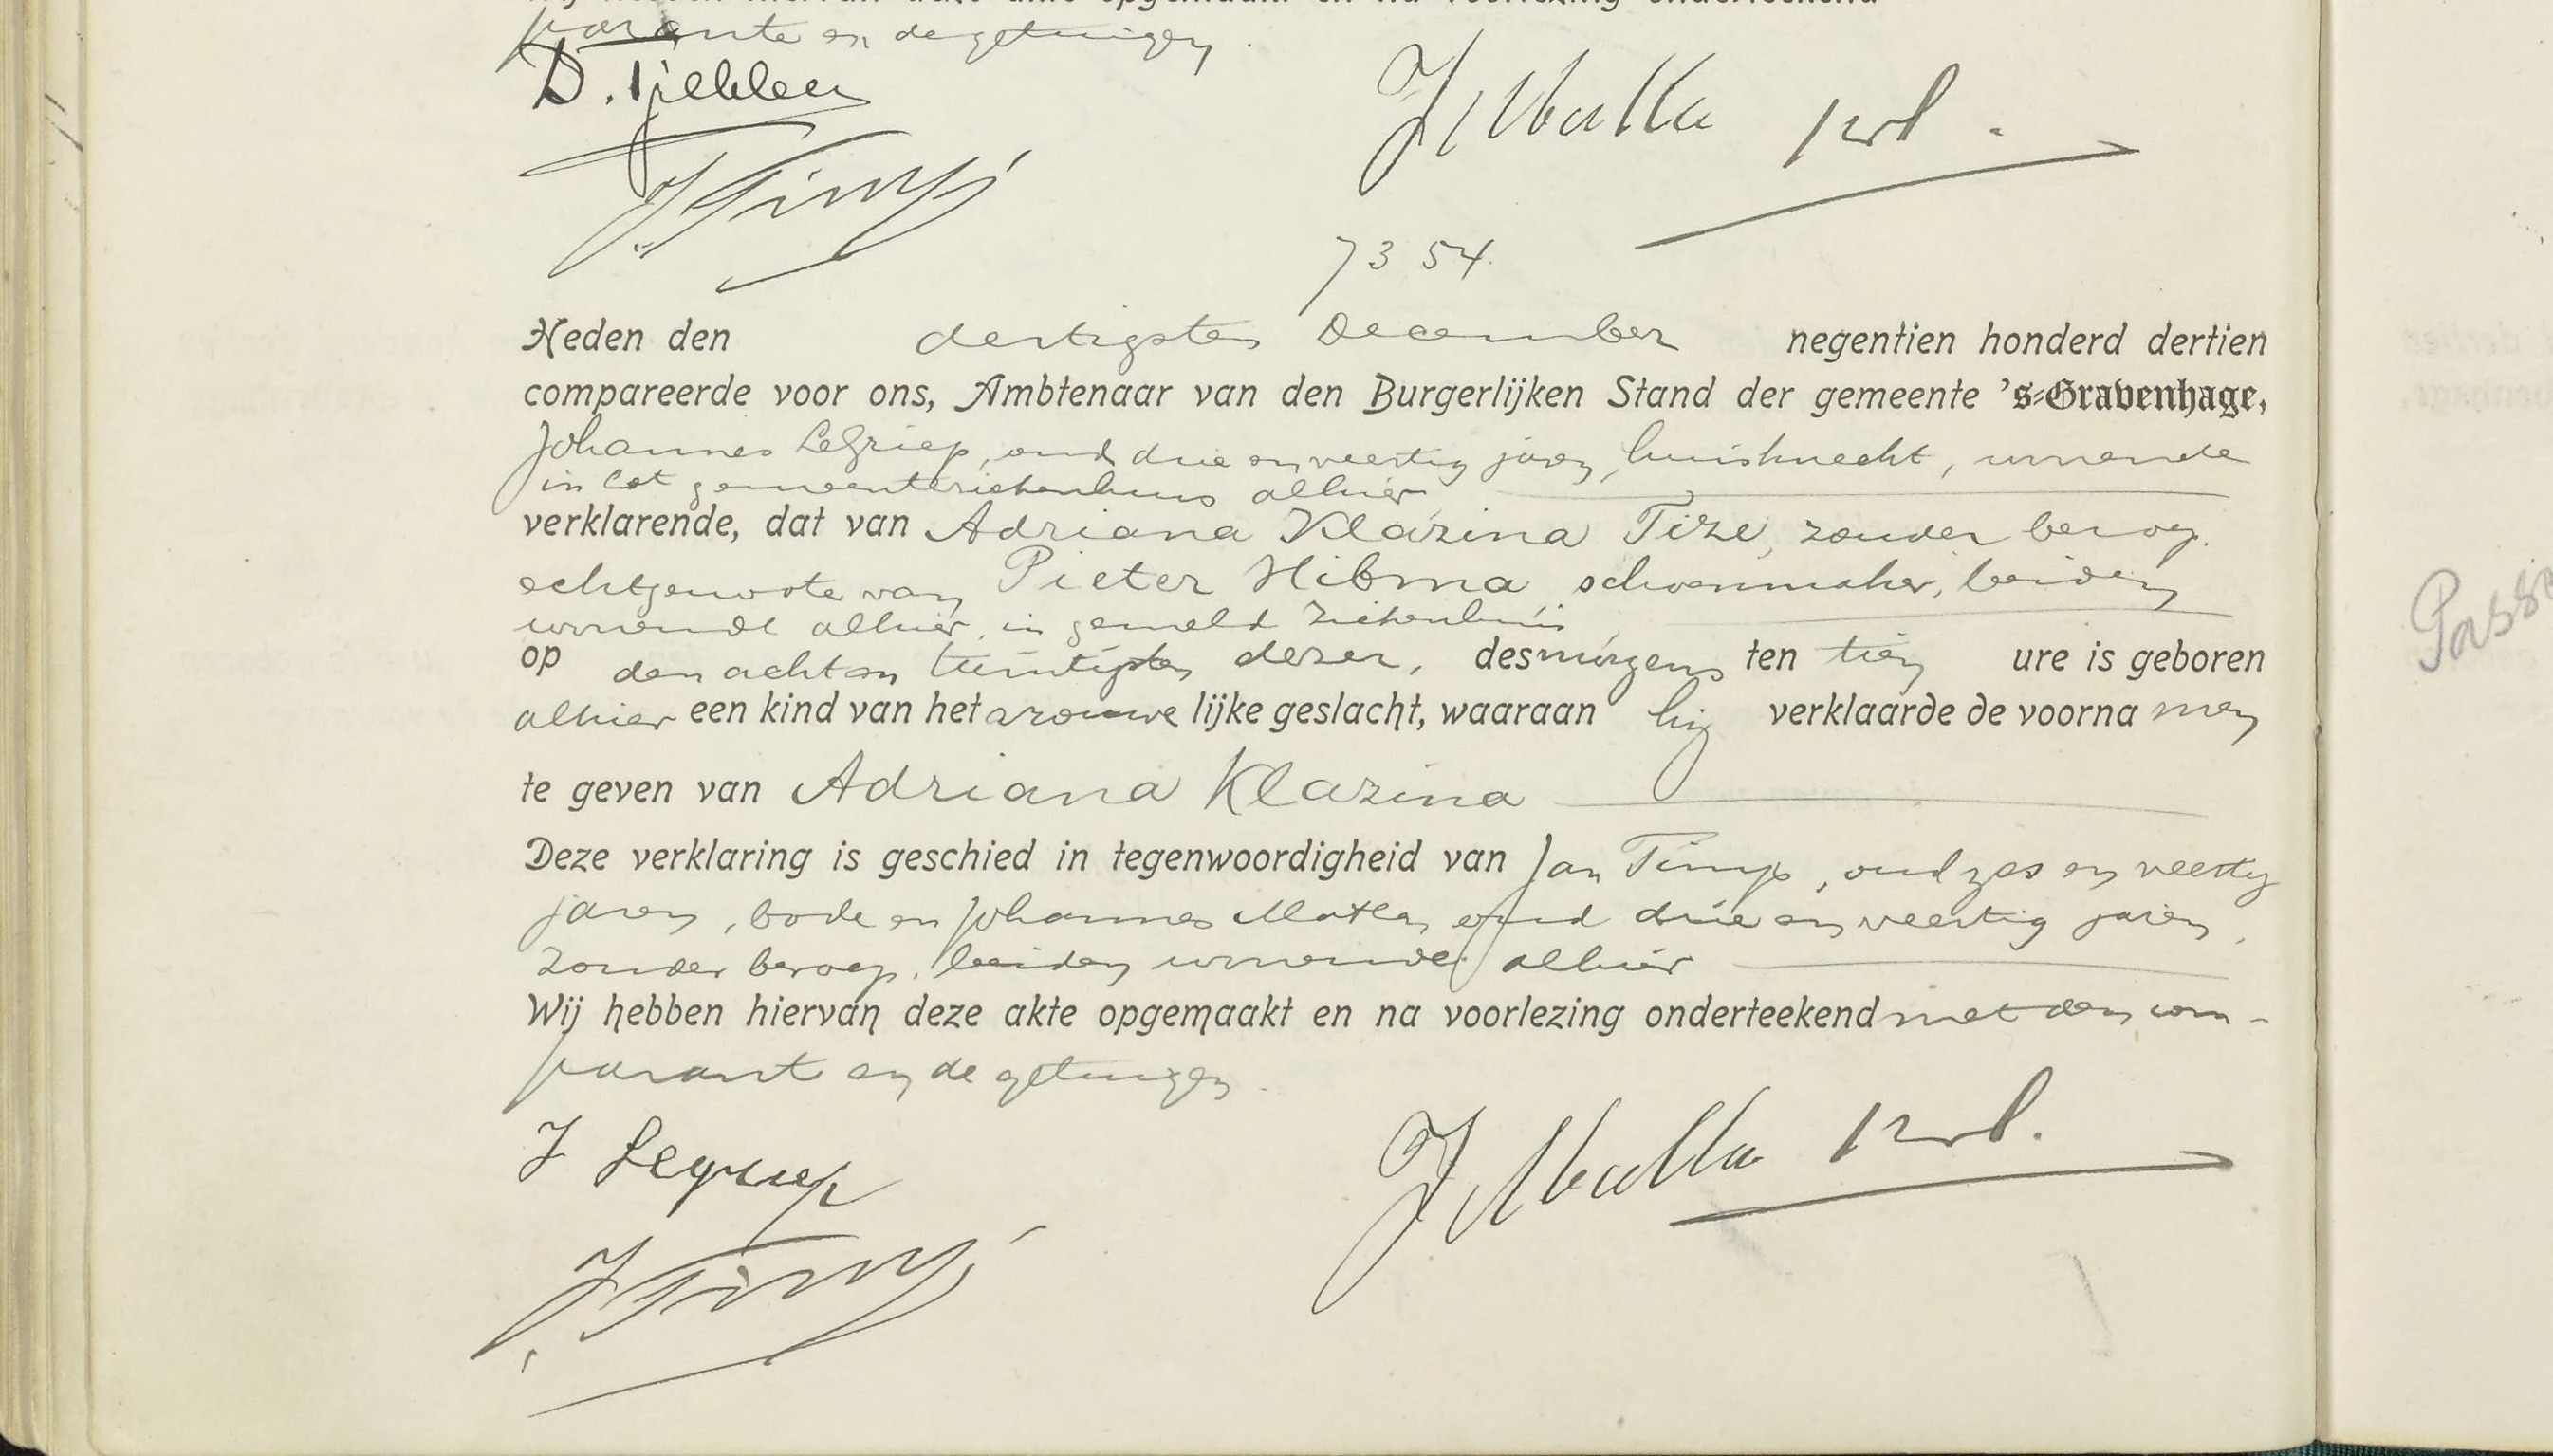 Wij hebben hiervan deze akte opgemaakt en na voorlezing onderteekend
parante en de getuigen.
D. Tjebbes
J. Timp
7354.
Heden den dertigsten December negentien honderd dertien
compareerde voor ons, Ambtenaar van den Burgerlijken Stand der gemeente 's-Gravenhage,
Johannes LeGriep, oud drie en veertig jaren, huisknecht, wonende
in het gemeenteziekenhuis alhier
verklarende, dat van Adriana Klazina Tize, zonder beroep.
echtgenoote van Pieter Hibma schoenmaker, beiden
wonende alhier, in gemeld ziekenhuis
op den acht en twintigsten dezer, des morgens ten tien ure is geboren
alhier een kind van het vrouwelijke geslacht, waaraan hij verklaarde de voornamen
te geven van Adriana Klazina
Deze verklaring is geschied in tegenwoordigheid van Jan Timp, oud zes en veertig
jaren, bode en Johannes Matla, oud drie en veertig jaren,
zonder beroep, beiden wonende alhier
Wij hebben hiervan deze akte opgemaakt en na voorlezing onderteekend met den com-
parant en de getuigen.
J Legriep
J Matla
J. Timp